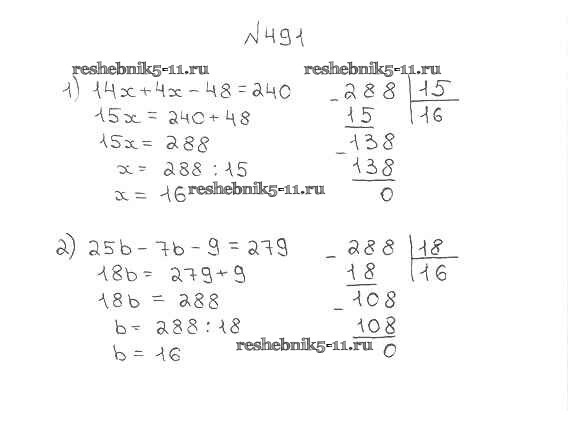 №491
reshebnik5-11.ru reshebnik5-11.ru
1) 14x+4x-48=240
15x = 240+48
15x= 288
x= 288 :15
x= 16 reshebnik5-11.ru
- 288 | 15
15 | 16
- 138
138
0
2) 25b-7b-9=279
18b= 279+9
18b = 288
b= 288:18
b= 16
- 288 | 18
18 | 16
- 108
108
reshebnik5-11.ru
0